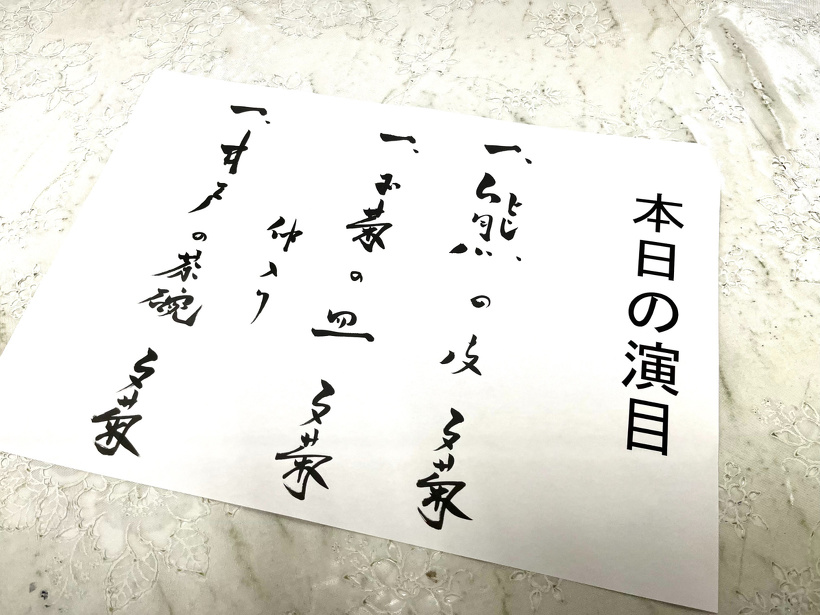 本日の演目
一、熊の皮 文菊
一、お菊の皿 文菊
仲入り
一、井戸の茶碗 文菊